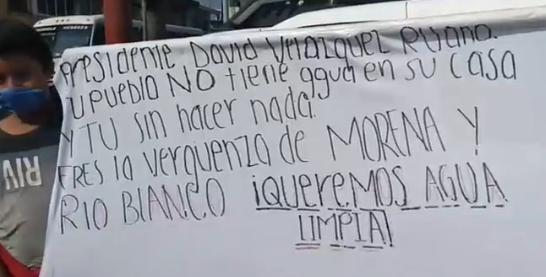 Presidente David Velazquez Ruano.
U PUEBLO NO tiene agua en su casa
Y TU sin hacer nada.
ERES la verguenza de MORENA Y
RIO BlANCO ¡QUEREMOS AGUA
LIMPIA!